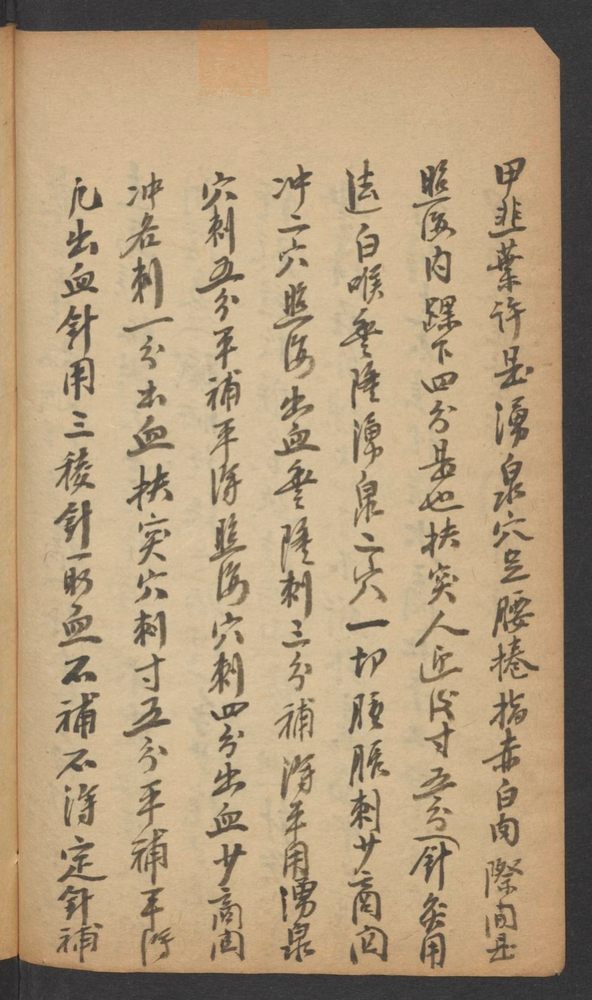 甲韭葉許是湧泉穴足腰捲指赤白肉際間是
照海内踝下四分是也扶突人迎後寸五分針灸用
法白喉豊隆湧泉二穴一切腫脹刺少商関
冲二穴照海出血豊隆刺三分補泻平用湧泉
穴刺五分平補平泻照海穴刺四分出血少商関
冲各刺一分出血扶突穴刺寸五分平補平泻
凡出血針用三稜針取血不補不泻定針補